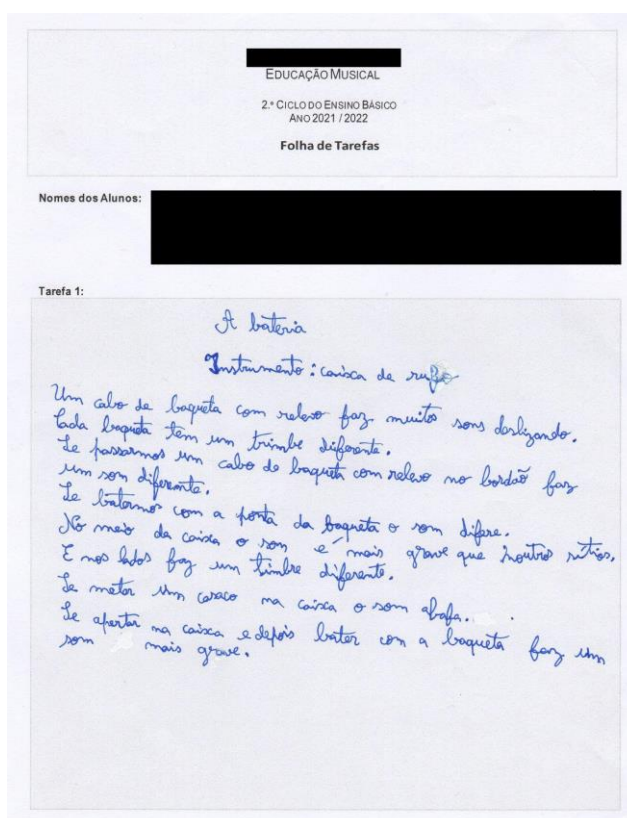 EDUCAÇÃO MUSICAL
2.º CICLO DO ENSINO BÁSICO
ANO 2021 / 2022
Folha de Tarefas
Nomes dos Alunos:
Tarefa 1:
A bateria
Instrumento: caixa de rufo
Um cabo de baqueta com relevo faz muitos sons deslizando.
Cada baqueta tem um trimbe diferente.
Se passarmos um cabo de baqueta com relevo no bordão faz
um som diferente.
Se batermos com a ponta da baqueta o som difere.
No meio da caixa o som é mais grave que noutros sítios.
E nos lados faz um timbre diferente.
Se meter um casaco na caixa o som abafa.
Se apertar na caixa e depois bater com a baqueta faz um
som mais grave.